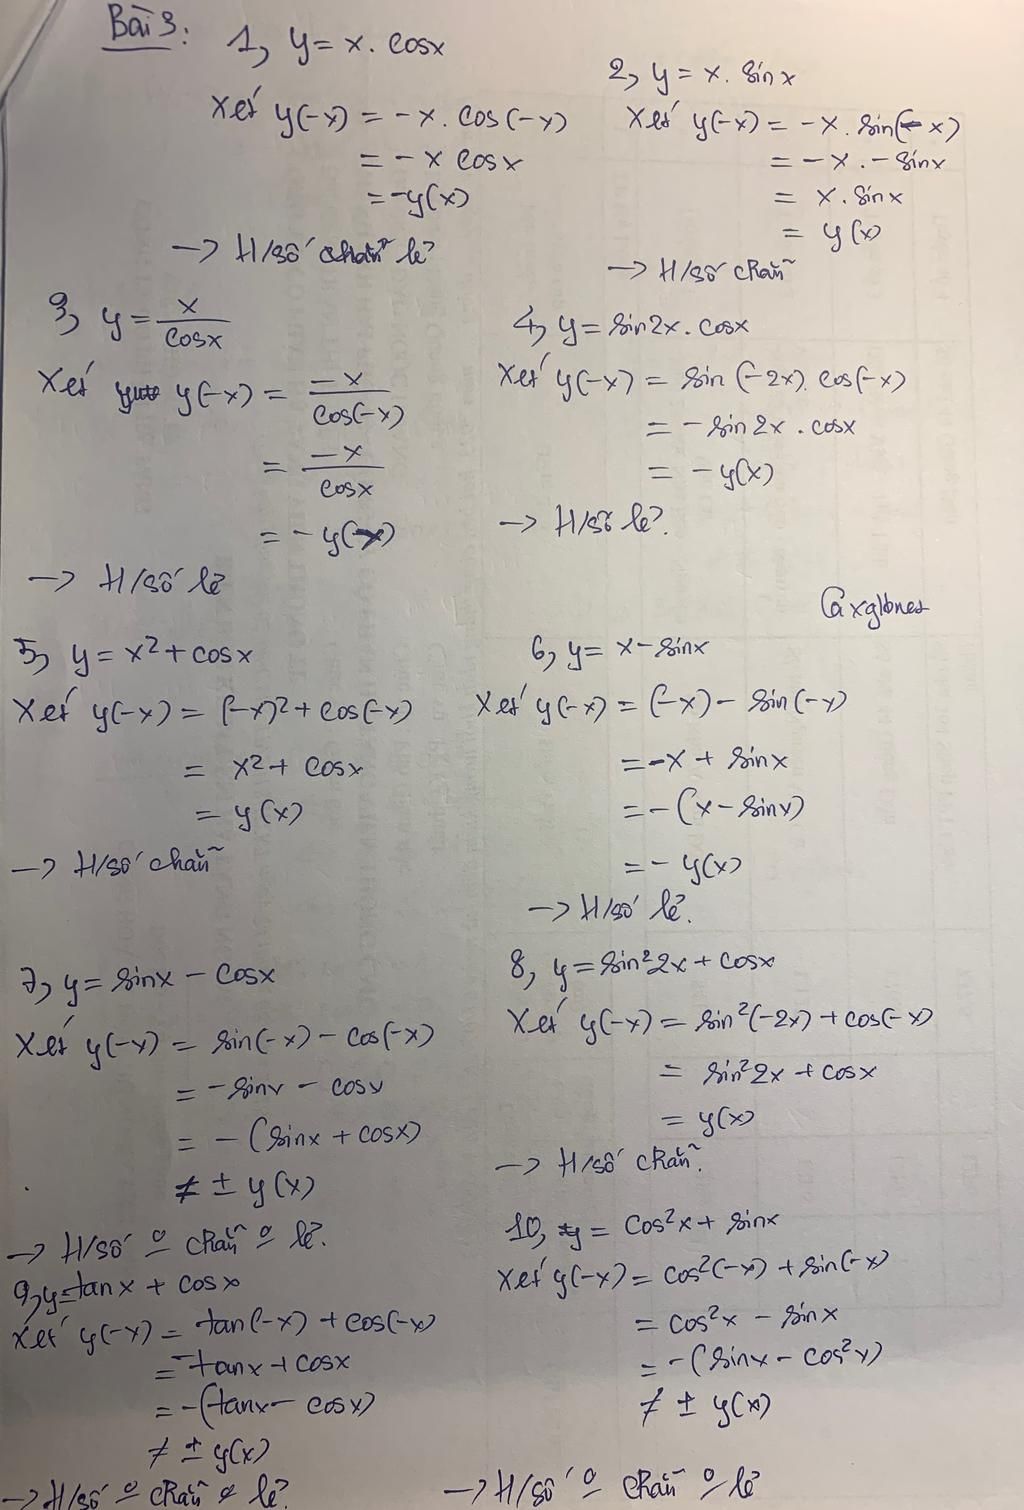 Bài 3:
1, y = x. cosx
Xét y(-x) = -x. cos(-x)
= -x cosx
= -y(x)
-> H/số chẵn lẻ
2, y = x. sinx
Xét y(-x) = -x. sin(-x)
= -x. - sinx
= x. sinx
= y(x)
-> H/số chẵn
3, y = x/cosx
Xét y(-x) = -x/cos(-x)
= -x/cosx
= - y(x)
-> H/số lẻ
4, y = sin2x. cosx
Xét y(-x) = sin(-2x). cos(-x)
= - sin2x. cosx
= - y(x)
-> H/số lẻ.
5, y = x² + cosx
Xét y(-x) = (-x)² + cos(-x)
= x² + cosx
= y(x)
-> H/số chẵn
6, y = x - sinx
Xét y(-x) = (-x) - sin(-x)
= -x + sinx
= - (x - sinx)
= - y(x)
-> H/số lẻ.
7, y = sinx - cosx
Xét y(-x) = sin(-x) - cos(-x)
= - sinx - cosx
= - (sinx + cosx)
≠ ± y(x)
-> H/số o chẵn o lẻ.
8, y = sin²2x + cosx
Xét y(-x) = sin²(-2x) + cos(-x)
= sin²2x + cosx
= y(x)
-> H/số chẵn.
9, y = tanx + cosx
Xét y(-x) = tan(-x) + cos(-x)
= -tanx + cosx
= -(tanx - cosx)
≠ ± y(x)
-> H/số o chẵn o lẻ.
10, y = cos²x + sinx
Xét y(-x) = cos²(-x) + sin(-x)
= cos²x - sinx
= -(sinx - cos²x)
≠ ± y(x)
-> H/số o chẵn o lẻ